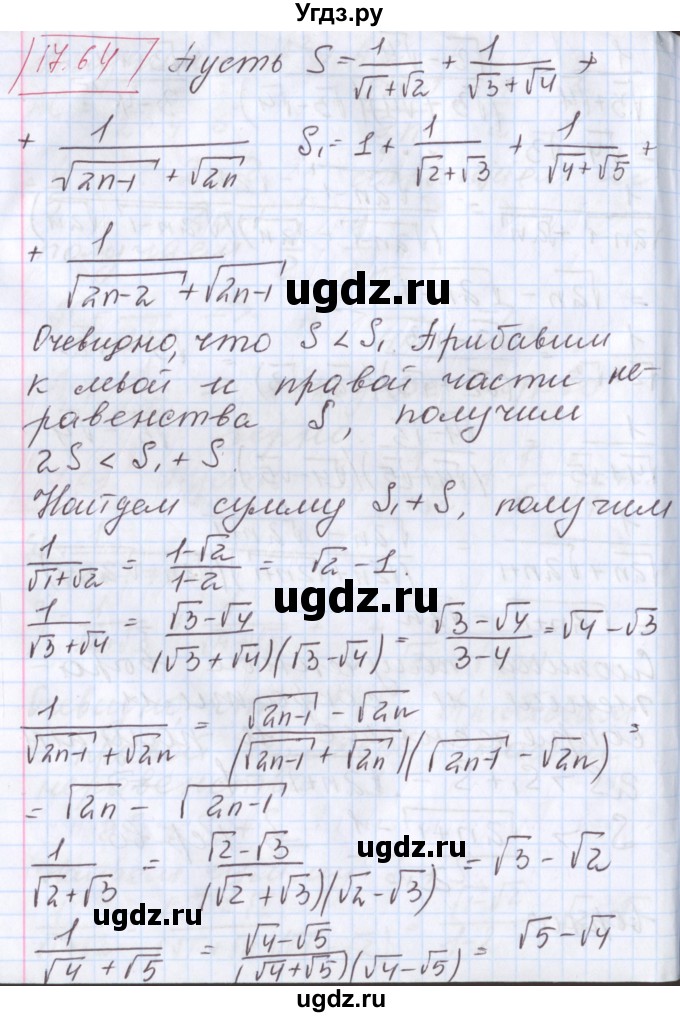 Угдз.ру
17.64 Пусть S = 1/(√1+√2) + 1/(√3+√4) +
+ 1/(√(2n-1) + √(2n))   S₁ = 1 + 1/(√2+√3) + 1/(√4+√5) +
+ 1/(√(2n-2) + √(2n-1))
ugdz.ru
Очевидно, что S < S₁. Прибавим
к левой и правой части не-
равенства S, получим
2S < S₁ + S.
ugdz.ru
Найдем сумму S₁ + S, получим
1/(√1+√2) = (1-√2)/(1-2) = √2 - 1.
ugdz.ru
1/(√3+√4) = (√3-√4)/((√3+√4)(√3-√4)) = (√3-√4)/(3-4) = √4 - √3
1/(√(2n-1) + √(2n)) = (√(2n-1) - √(2n))/((√(2n-1) + √(2n))(√(2n-1) - √(2n))) =
= √(2n) - √(2n-1)
ugdz.ru
1/(√2+√3) = (√2-√3)/((√2+√3)(√2-√3)) = √3 - √2
ugdz.ru
1/(√4+√5) = (√4-√5)/((√4+√5)(√4-√5)) = √5 - √4
ugdz.ru